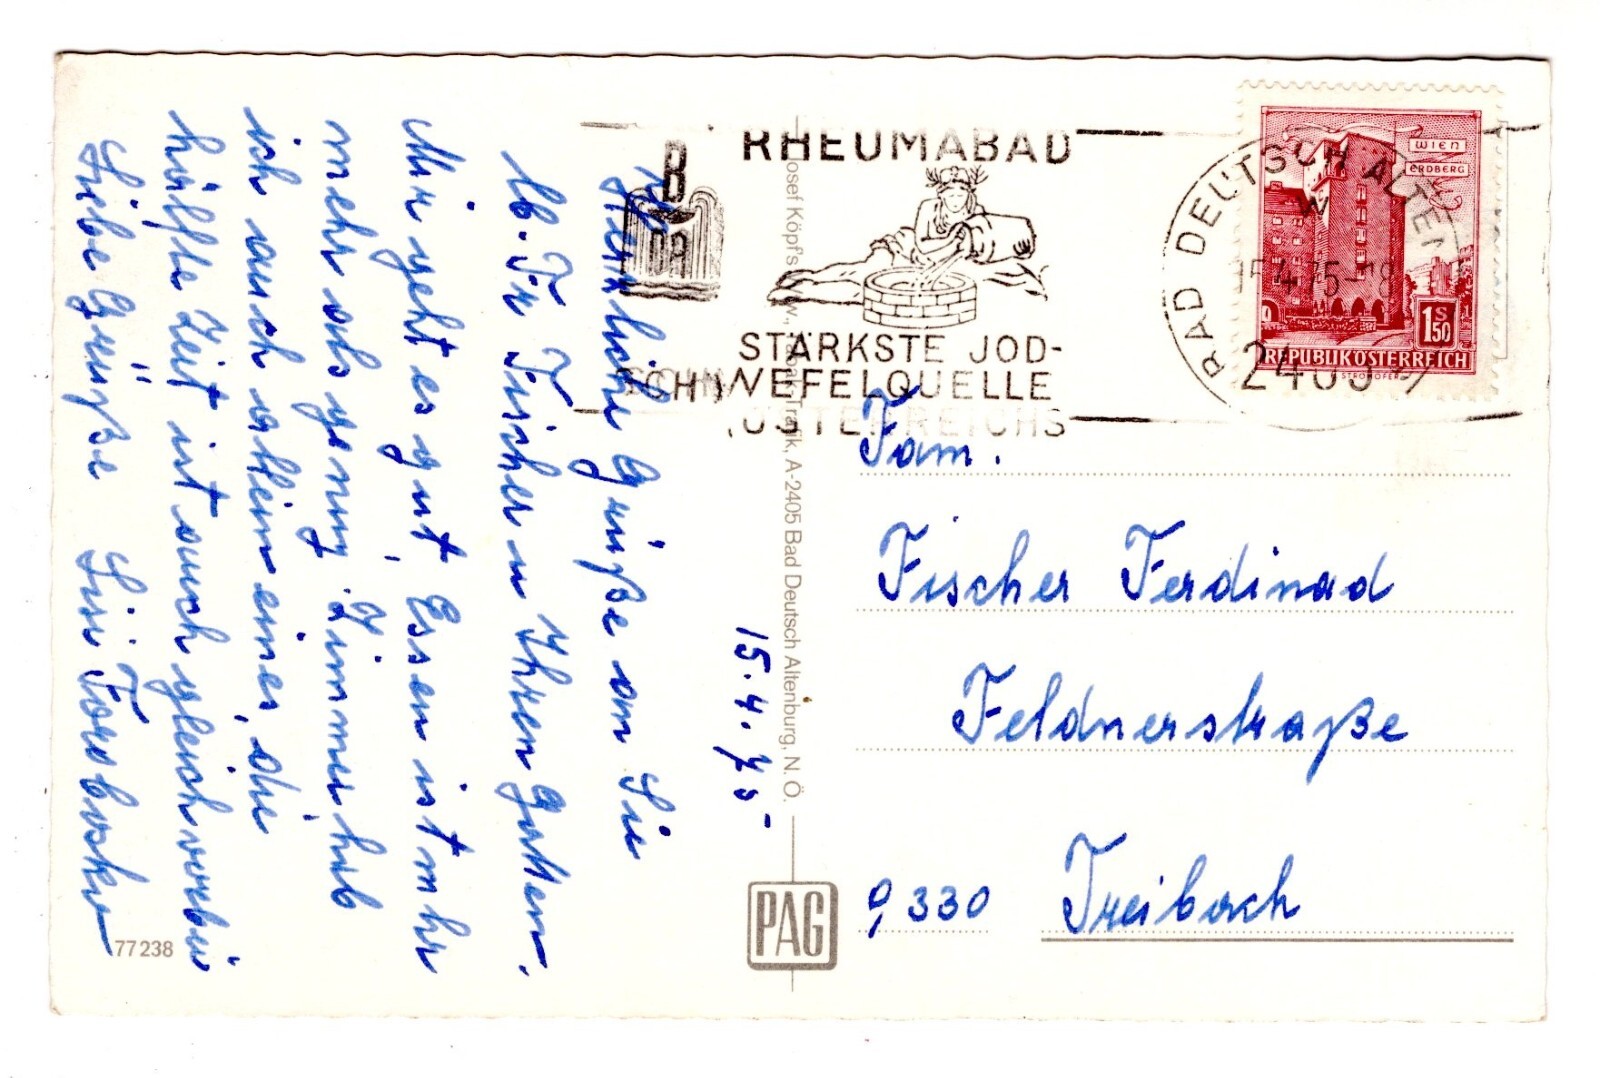 RHEUMABAD
B
DA
STÄRKSTE JOD-
SCHWEFELQUELLE
ÖSTERREICHS
BAD DEUTSCH ALTEN
15.4.75-18
2405
WIEN
ERDBERG
1 S 50
REPUBLIK ÖSTERREICH
15. 4. 75-
Herzliche Grüße an Sie
lb. Fr. Fischer u Ihren Gatten.
Mir geht es gut, Essen ist mehr
mehr als genug, Zimmer hab
ich auch allein eines, die
hälfte Zeit ist auch gleich vorbei
Liebe Grüße Lisi
Josef Köpf's Trafik, A-2405 Bad Deutsch Altenburg, N.Ö.
Fam.
Fischer Ferdinad
Feldnerstraße
9330 Treibach
PAG
77238